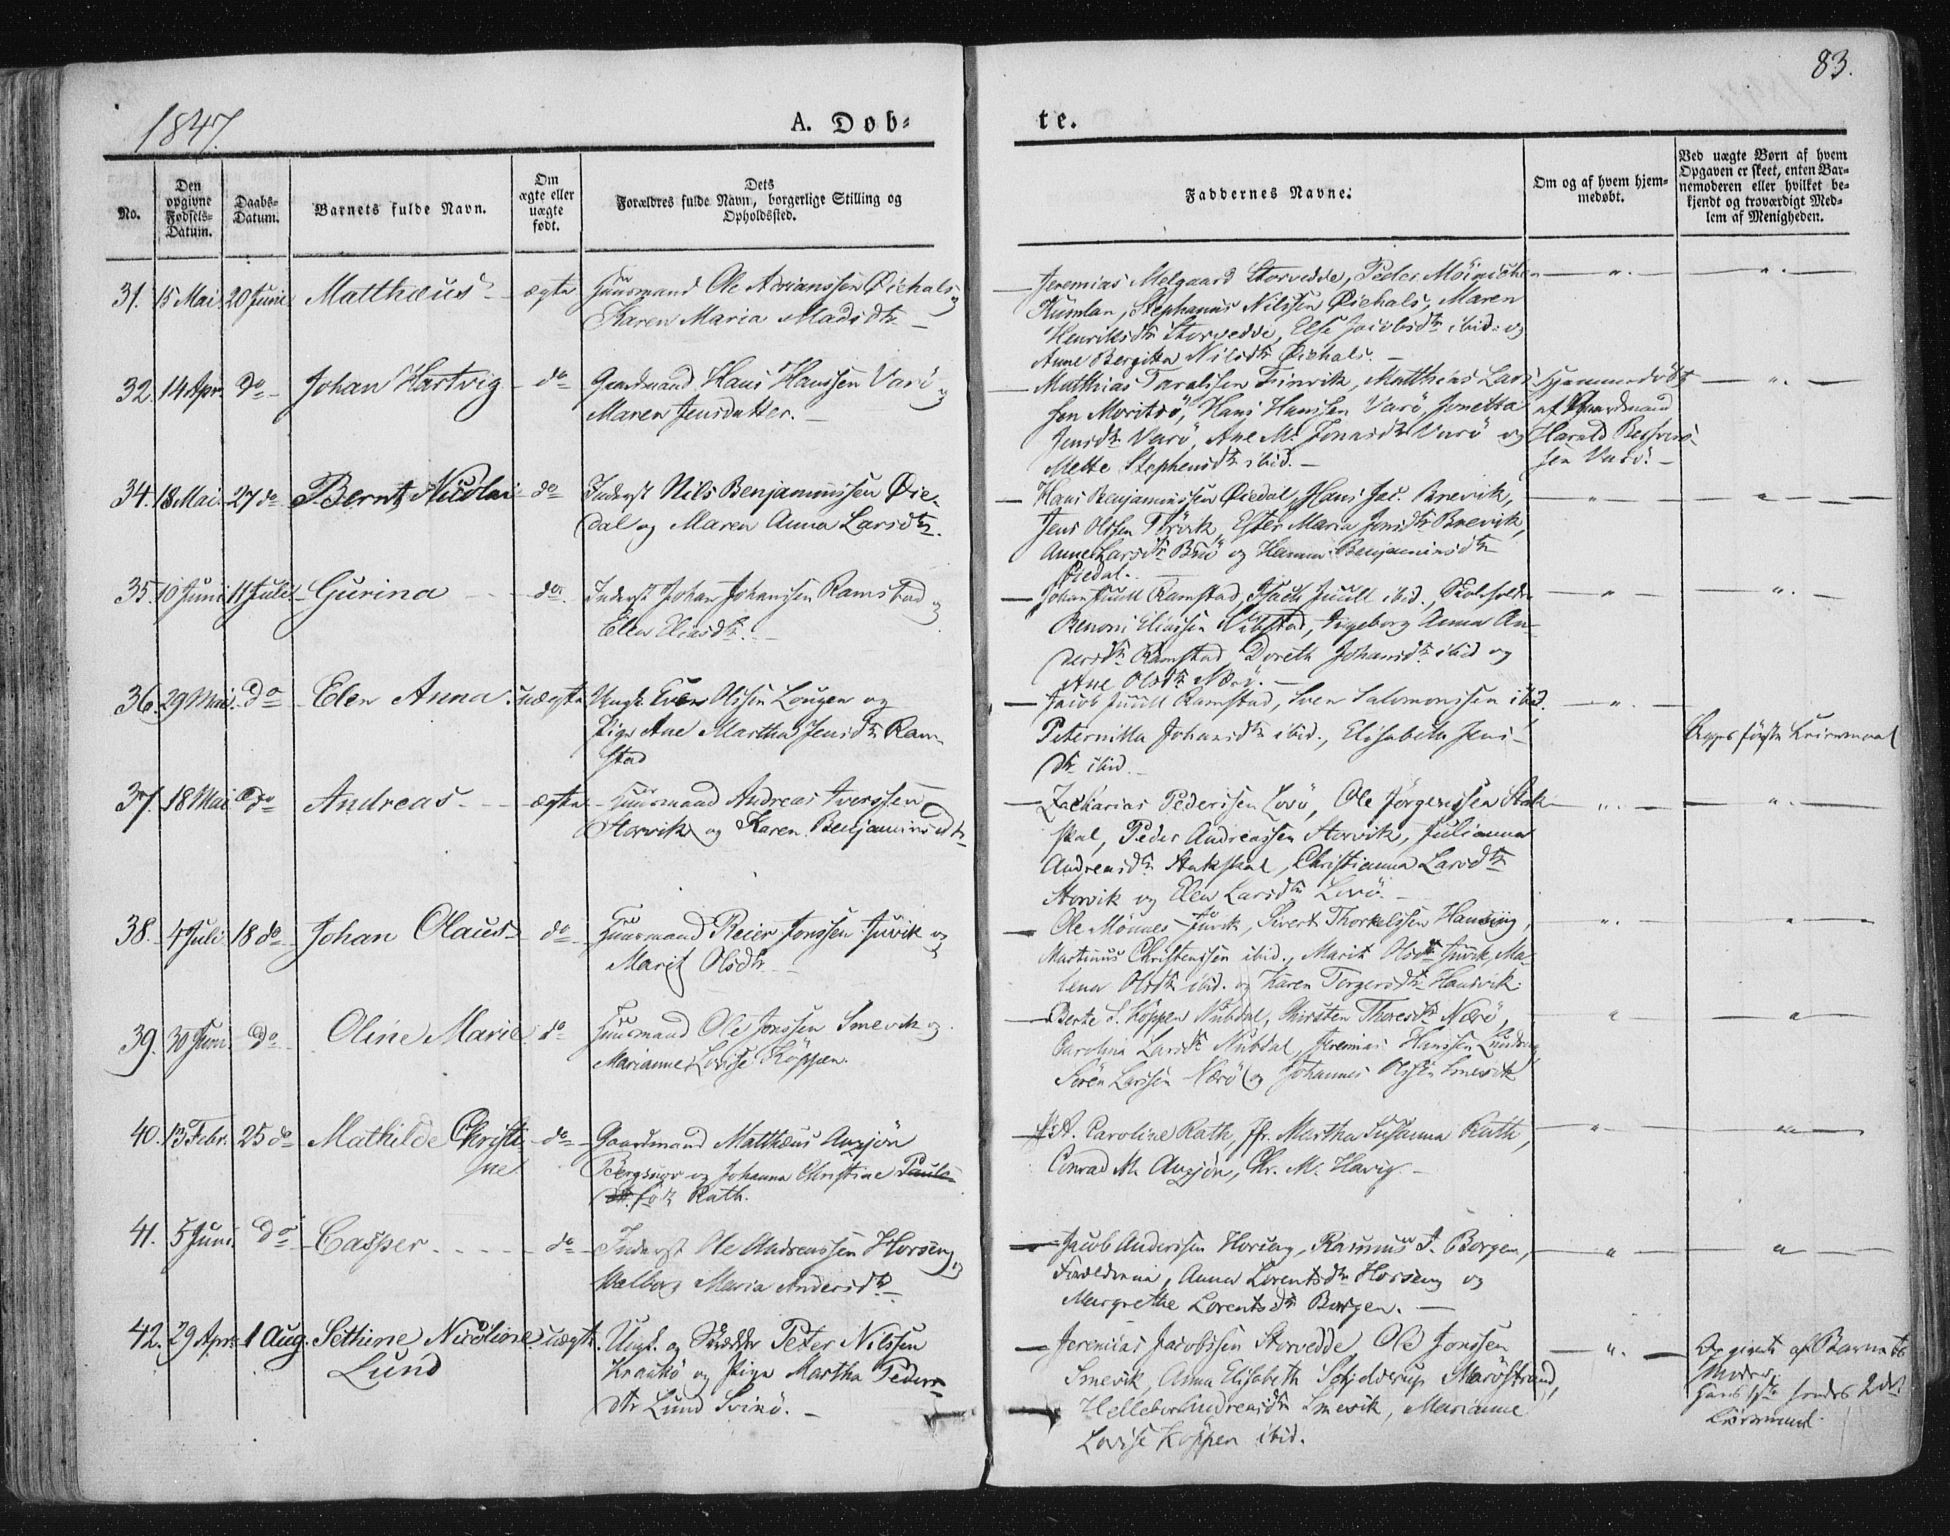 83.
1847.
A. Döb-
te.
No.
Den opgivne Fødsels-Datum.
Daabs-Datum.
Barnets fulde Navn.
Om ægte eller uægte født.
Dets Forældres fulde Navn, borgerlige Stilling og Opholdssted.
Faddernes Navne.
Om og af hvem hjemmedøbt.
Ved uægte Børn af hvem Opgaven er skeet, enten Barnemoderen eller hvilket bekjendt og troværdigt Medlem af Menigheden.
31. 15 Mai 20 Juni Matthæus ægte Huusmand Ole Adrianssen Øiehals og
Karen Maria Madsdtr
Jeremias Melgaard Storvedde, Peder
Stephanus Nilssen Øiehals, Maren
Henriksdtr Storvedde, Else Jacobsdtr ibid. og
Anne Bergitta Nilsdtr Øiehals.
32. 14 Apr. do Johan Hartvig do Gaardmand Hans Hanssen Varö og
Maren Jensdatter.
Matthias Taralssen Finvik, Matthias Lars-
sen Moritsö, Hans Hanssen Varö, Jonetta
Jensdtr Varö, Ane M. Jonasdtr Varö og
Mette Stephensdtr ibid.
Hjemmedöbt
af Gaardmand
Harald
sen Varö.
34. 18 Mai 27 do Bernt Nicolai do Inderst Nils Benjaminssen Øie-
dal og Maren Anna Larsdtr.
Hans Benjaminssen Øiedal, Hans Jac. Brevik,
Jens Olssen Ester Maria Jonsdtr Brevik,
Anne Larsdtr og Hanna Benjaminsdtr
Øiedal.
35. 10 Juni 11 Juli Gurina do Inderst Johan Johanssen Ramstad og
Elen Eliasdtr.
Johan Juull Ramstad, Isach Juull ibid.,
Benoni Eliassen Ingeborg Anna An-
dersdtr Ramstad, Doreth Johansdtr ibid og
Ane Olsdtr
36. 29 Mai do Elen Anna uægte Ungk. Even Olssen Lougen og
Pige Ane Martha Jensdtr Ram-
stad
Jacob Juull Ramstad, Sven Salomonssen ibid.
Peternilla Johansdtr ibid., Elisabeth Jens-
dtr ibid.
Begges første Leiermaal
37. 18 Mai do Andreas ægte Huusmand Andreas Iverssen
Storvik og Karen Benjaminsdtr
Zacharias Pederssen Lovö, Ole Jörgenssen
Peder Andreassen Storvik, Julianna
Andreasdtr Christianna Larsdtr
Storvik og Elen Larsdtr Lovö.
38. 4 Juli 18 do Johan Olaus do Huusmand Reier Jonssen Juvik og
Marit Olsdtr
Ole Mönnes Juvik, Sivert Thorkelssen
Martinus Christenssen ibid., Marit Olsdtr Juvik, Ma-
lena Olsdtr ibid. og Karen Torgersdtr Hansvik.
39. 30 Juni do Oline Marie do Huusmand Ole Jonssen Smevik og
Marianne Lovise Köppen.
Berte S. Köppen Nubdal, Kirsten Thoresdtr Nærö,
Carolina Larsdtr Nubdal, Jeremias Hanssen
Sören Larssen Nærö og Johannes Olssen Smevik
40. 13 Febr. 25 do Mathilde Christi-
ne do Gaardmand Matthæus Auzjön
Bergsnov og Johanna Christine Pauls-
dtr. f. Rath.
Caroline Rath, Jfr. Martha Susanna Rath,
Conrad M. Auzjön, Chr. M. Havig
41. 5 Juni do Casper do Inderst Ole Andreassen Horseng og
Valborg Maria Andersdtr
Jacob Anderssen Horseng, Rasmus J. Borgen,
Anna Lorentsdtr Horseng og
Margrethe Lorentsdtr Borgen.
42. 29 Apr. 1 Aug. Sethine Nicoline
Lund uægte Ungk. og Skrædder Peter Nilssen
Kraakö og Pige Martha Peders-
dtr Lund Svinö.
Jeremias Jacobssen Storvedde, Ole Jonssen
Smevik, Anna Elisabeth Schjelderup Maröstrand,
Hellebor Andreasdtr Smevik, Marianne
Lovise Köppen ibid.
Opgivet af Barnets
Moder;
Hans 1ste hendes 2det
Leiermaal.